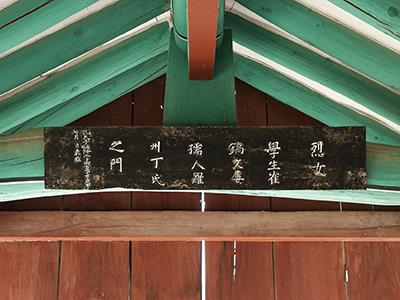 烈女
學生崔
鎬文妻
孺人羅
州丁氏
之門